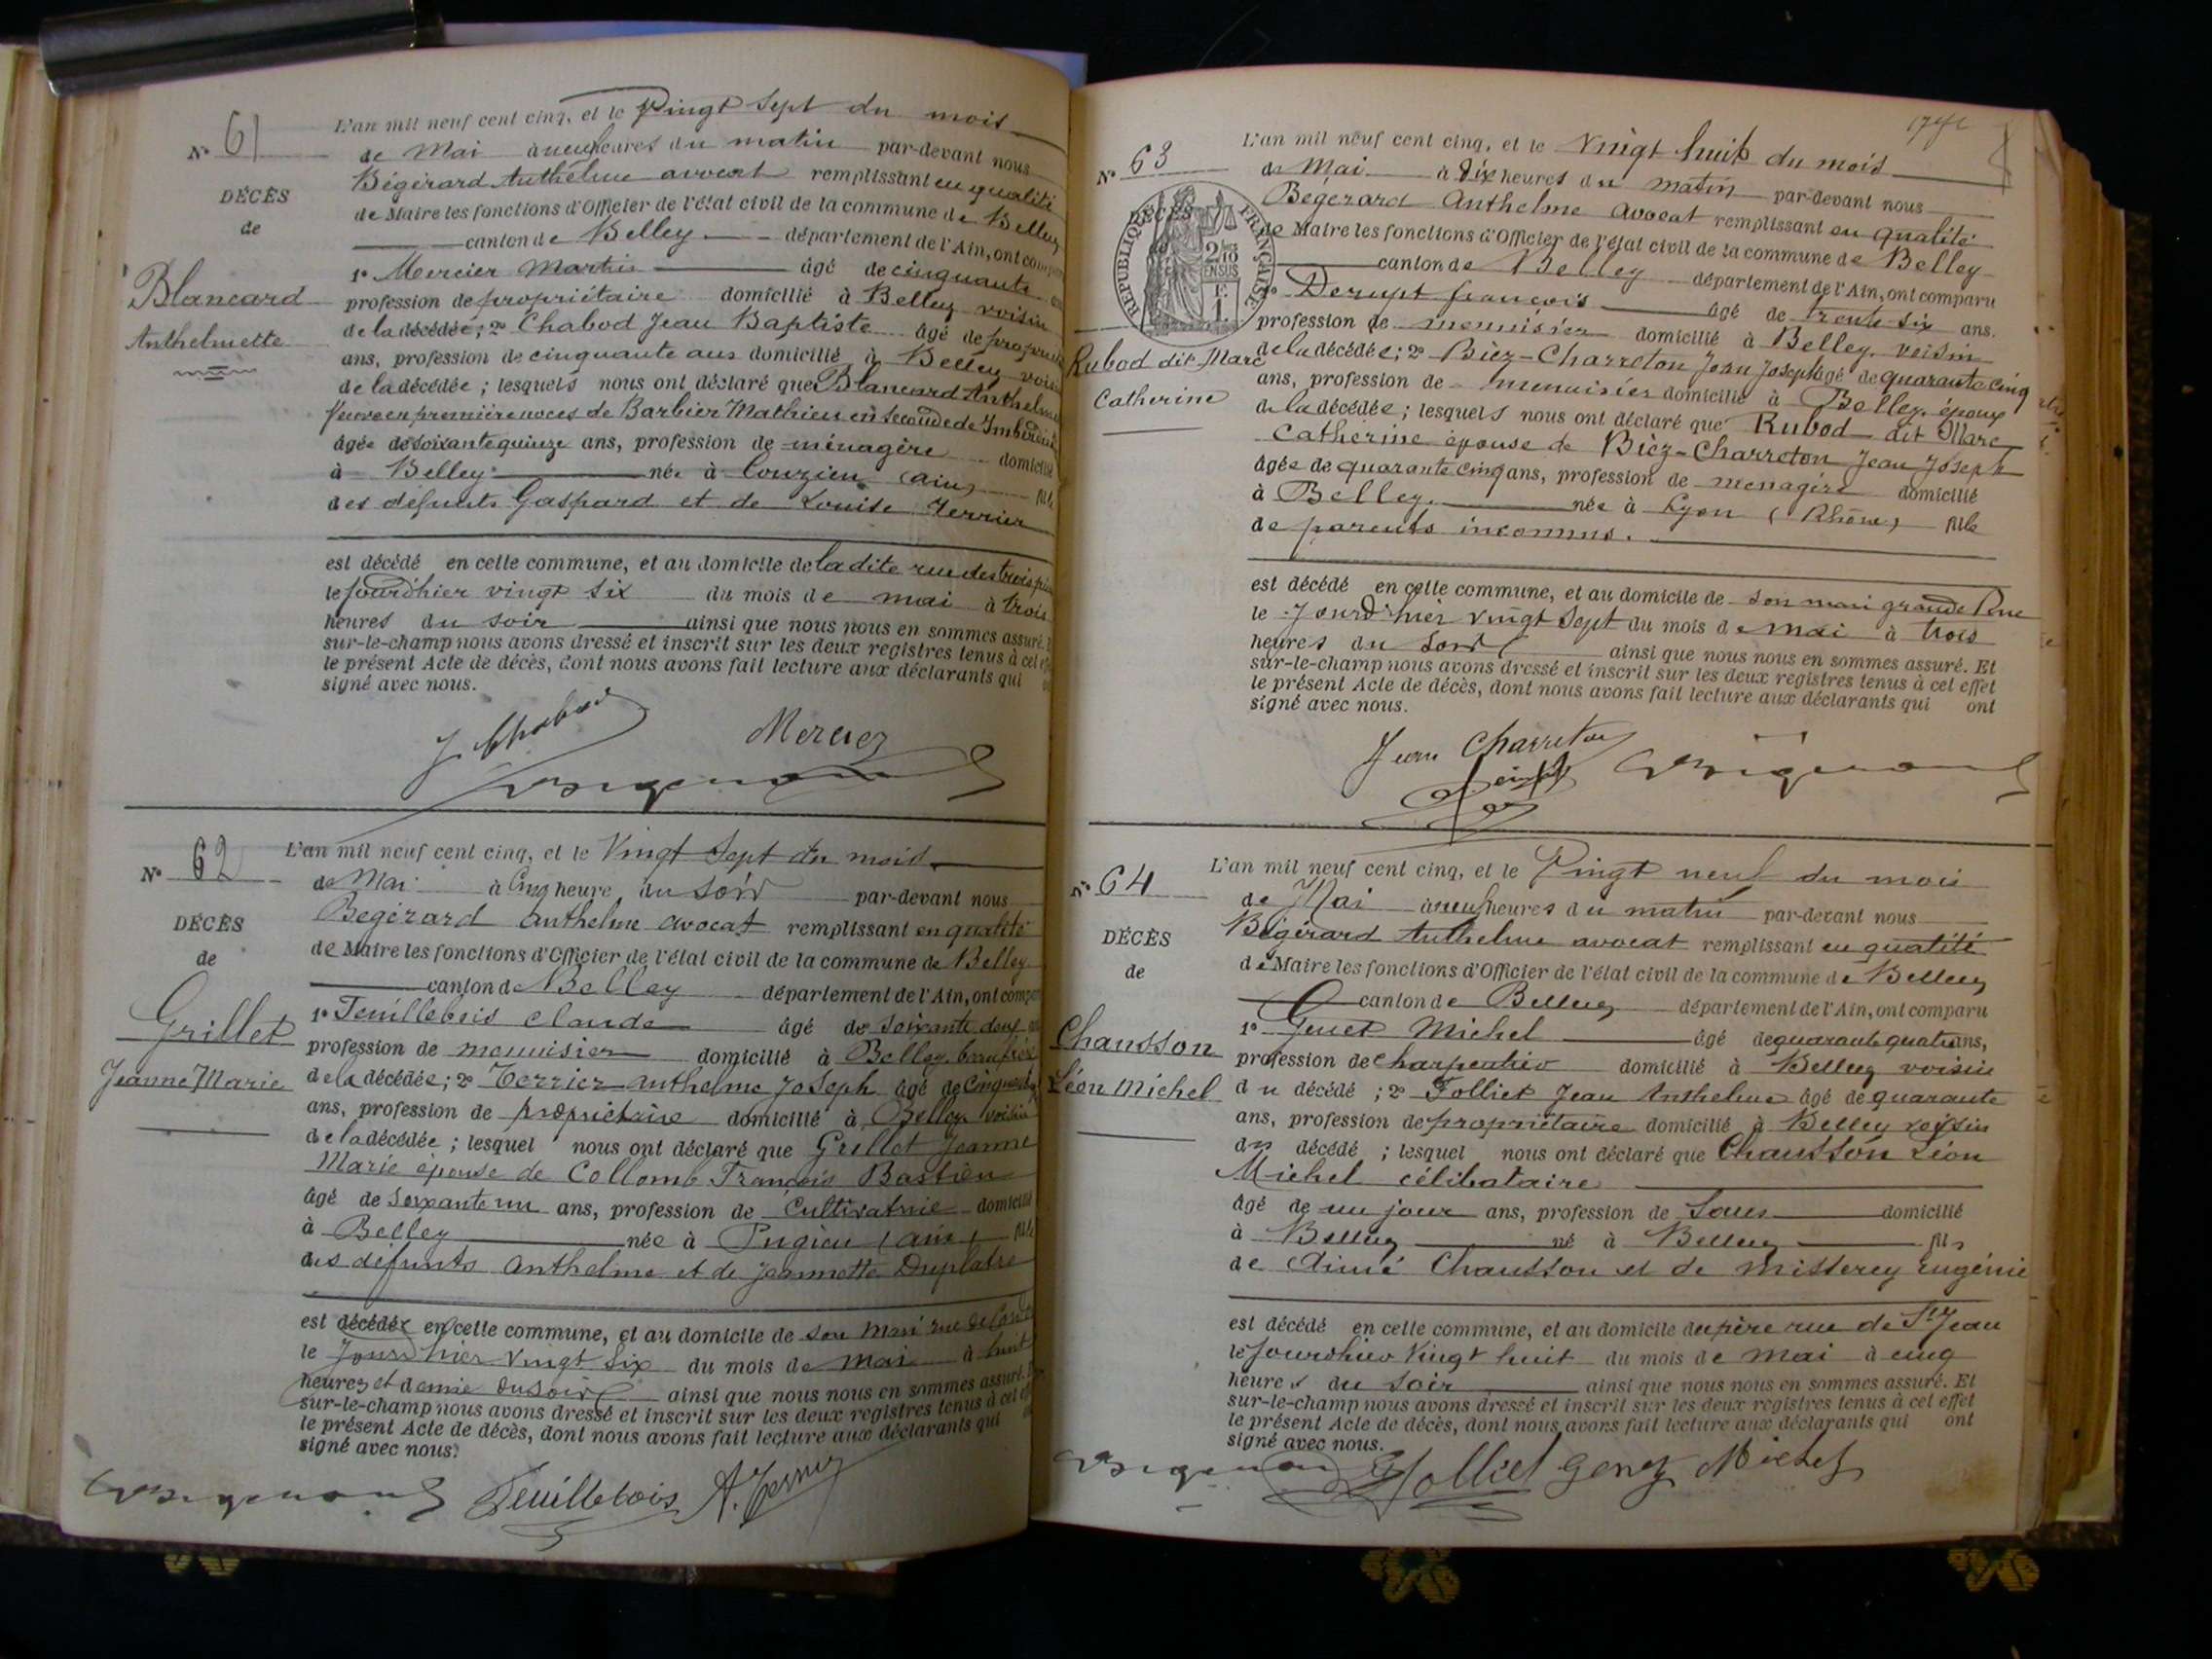 N° 61
DÉCÈS
de
Blancard
Anthelmette
L'an mil neuf cent cinq, et le Vingt sept du mois
de Mai à neuf heures du matin par-devant nous
Bégérard Anthelme avocat remplissant en qualité
de Maire les fonctions d'Officier de l'état civil de la commune de Belley
canton de Belley département de l'Ain, ont comparu
1° Mercier Martin âgé de cinquante
profession de propriétaire domicilié à Belley voisin
de la décédée; 2° Chabod Jean Baptiste âgé de
ans, profession de cinquante ans domicilié à Belley voisin
de la décédée; lesquels nous ont déclaré que Blancard
Veuve en premières noces de Barbier Mathieu en seconde de
âgée de soixante quinze ans, profession de ménagère domicilié
à Belley née à Conzieu (ain) fille
des défunts Gaspard et de Louise Terrier
est décédé en cette commune, et au domicile de la dite rue des trois
le jourd'hier vingt six du mois de mai à trois
heures du soir ainsi que nous nous en sommes assuré.
sur-le-champ nous avons dressé et inscrit sur les deux registres tenus à cet
le présent Acte de décès, dont nous avons fait lecture aux déclarants qui
signé avec nous.
J Chabod Mercier
N° 62
DÉCÈS
de
Grillet
Jeanne Marie
L'an mil neuf cent cinq, et le Vingt Sept du mois
de Mai à Cinq heure du soir par-devant nous
Bégérard Anthelme avocat remplissant en qualité
de Maire les fonctions d'Officier de l'état civil de la commune de Belley
canton de Belley département de l'Ain, ont
1° Feuillebois Claude âgé de soixante deux
profession de menuisier domicilié à Belley beaufrère
de la décédée; 2° Terrier Anthelme Joseph âgé de
ans, profession de propriétaire domicilié à Belley voisin
de la décédée; lesquel nous ont déclaré que Grillet Jeanne
Marie épouse de Collomb François Bastien
âgé de soixante un ans, profession de Cultivatrice domicilié
à Belley née à Pugieu (ain) fille
des défunts Anthelme et de Jeannette Duplatre
est décédée en cette commune, et au domicile de son mari rue de
le jourd'hier vingt six du mois de mai à huit
heures et demie du soir ainsi que nous nous en sommes assuré.
sur-le-champ nous avons dressé et inscrit sur les deux registres tenus à cet
le présent Acte de décès, dont nous avons fait lecture aux déclarants qui
signé avec nous.
Feuillebois A. Terrier
N° 63
DÉCÈS
RÉPUBLIQUE FRANÇAISE
2/10
EN SUS
Rubod dit Marc
Catherine
L'an mil neuf cent cinq, et le Vingt huit du mois
de Mai à dix heures du matin par-devant nous
Bégérard Anthelme avocat remplissant en qualité
de Maire les fonctions d'Officier de l'état civil de la commune de Belley
canton de Belley département de l'Ain, ont comparu
1° Derupt François âgé de trente six ans.
profession de menuisier domicilié à Belley. voisin
de la décédée; 2° Bièz-Charreton Jean Joseph âgé de quarante cinq
ans, profession de menuisier domicilié à Belley. époux
de la décédée; lesquels nous ont déclaré que Rubod dit Marc
Catherine épouse de Bièz-Charreton Jean Joseph
âgée de quarante cinq ans, profession de ménagère domicilié
à Belley. née à Lyon (Rhône) fille
de parents inconnus.
est décédé en cette commune, et au domicile de son mari grande Rue
le jourd'hier vingt sept du mois de mai à trois
heures du soir ainsi que nous nous en sommes assuré. Et
sur-le-champ nous avons dressé et inscrit sur les deux registres tenus à cet effet
le présent Acte de décès, dont nous avons fait lecture aux déclarants qui ont
signé avec nous.
Jean Charreton
N° 64
DÉCÈS
de
Chausson
Léon Michel
L'an mil neuf cent cinq, et le Vingt neuf du mois
de Mai à neuf heures du matin par-devant nous
Bégérard Anthelme avocat remplissant en qualité
de Maire les fonctions d'Officier de l'état civil de la commune de Belley
canton de Belley département de l'Ain, ont comparu
1° Genet Michel âgé de quarante quatre ans,
profession de charpentier domicilié à Belley voisin
du décédé; 2° Folliet Jean Anthelme âgé de quarante
ans, profession de propriétaire domicilié à Belley voisin
du décédé; lesquel nous ont déclaré que Chausson Léon
Michel célibataire
âgé de un jour ans, profession de Sans domicilié
à Belley né à Belley fils
de Aimé Chausson et de Misterey Eugénie
est décédé en cette commune, et au domicile du père rue de St Jean
le jourdhier Vingt huit du mois de mai à cinq
heures du soir ainsi que nous nous en sommes assuré. Et
sur-le-champ nous avons dressé et inscrit sur les deux registres tenus à cet effet
le présent Acte de décès, dont nous avons fait lecture aux déclarants qui ont
signé avec nous.
Folliet Genet Michel